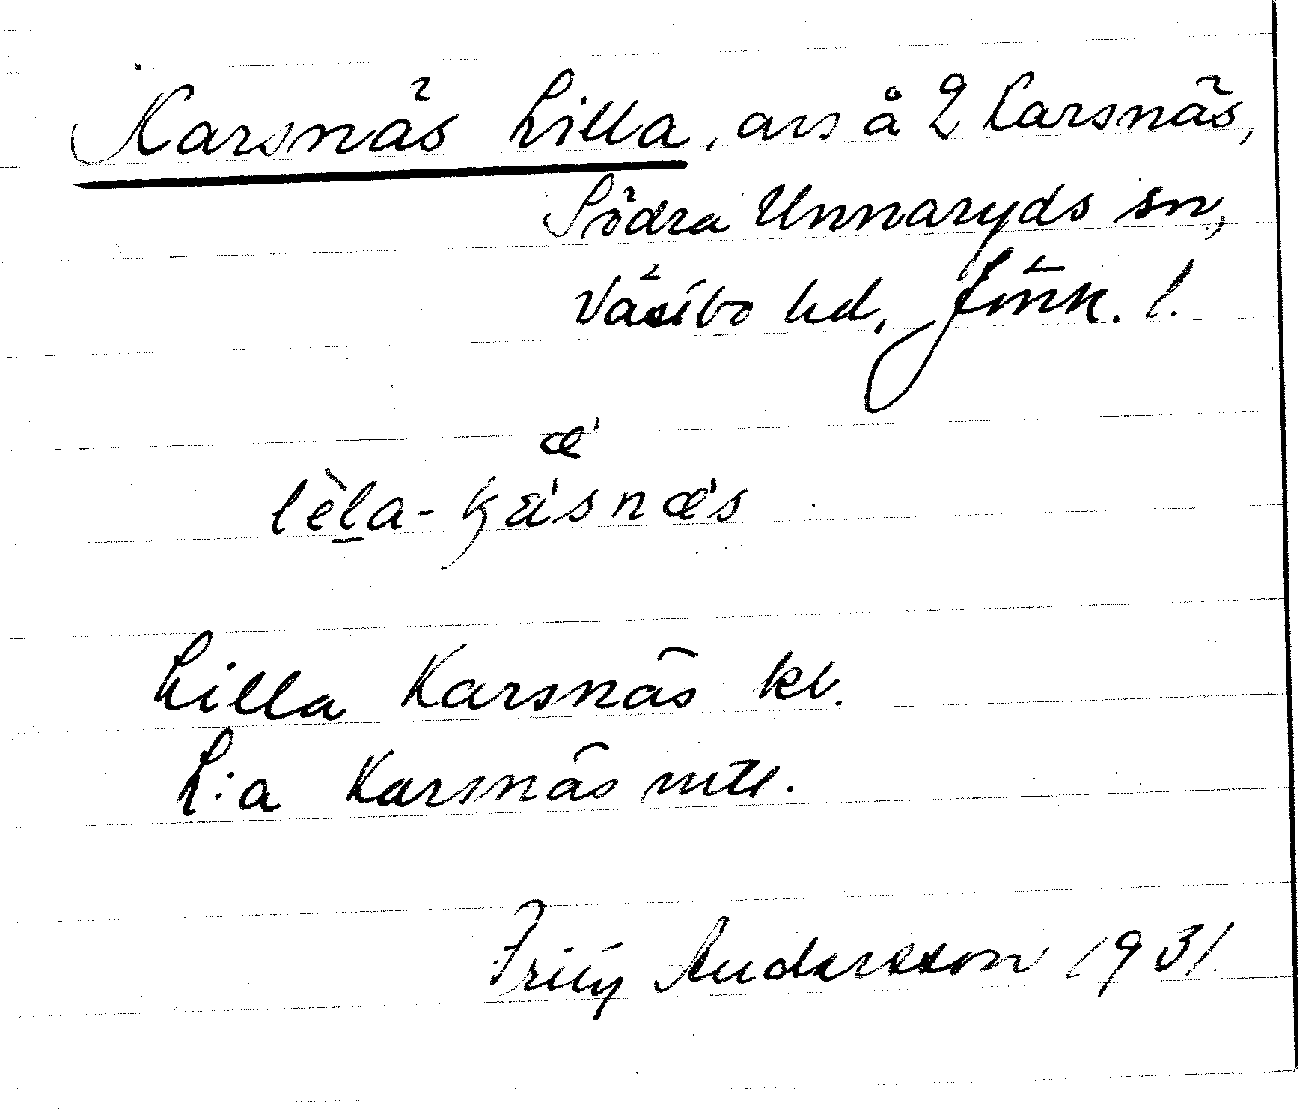 Karsnäs Lilla, avs å 2 Karsnäs,
Södra Unnaryds sn,
Västbo hd, Jönk. l.
æ̀
lèla-ká̈snæ̀s
Lilla Karsnäs kl.
L:a Karsnäs mtl.
Andersson 1931